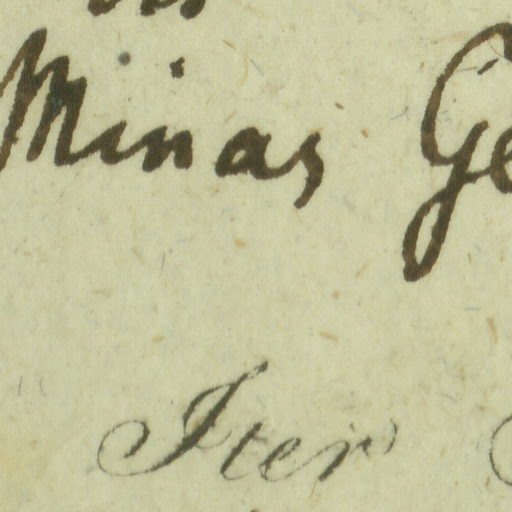 Minas Ge
Iter